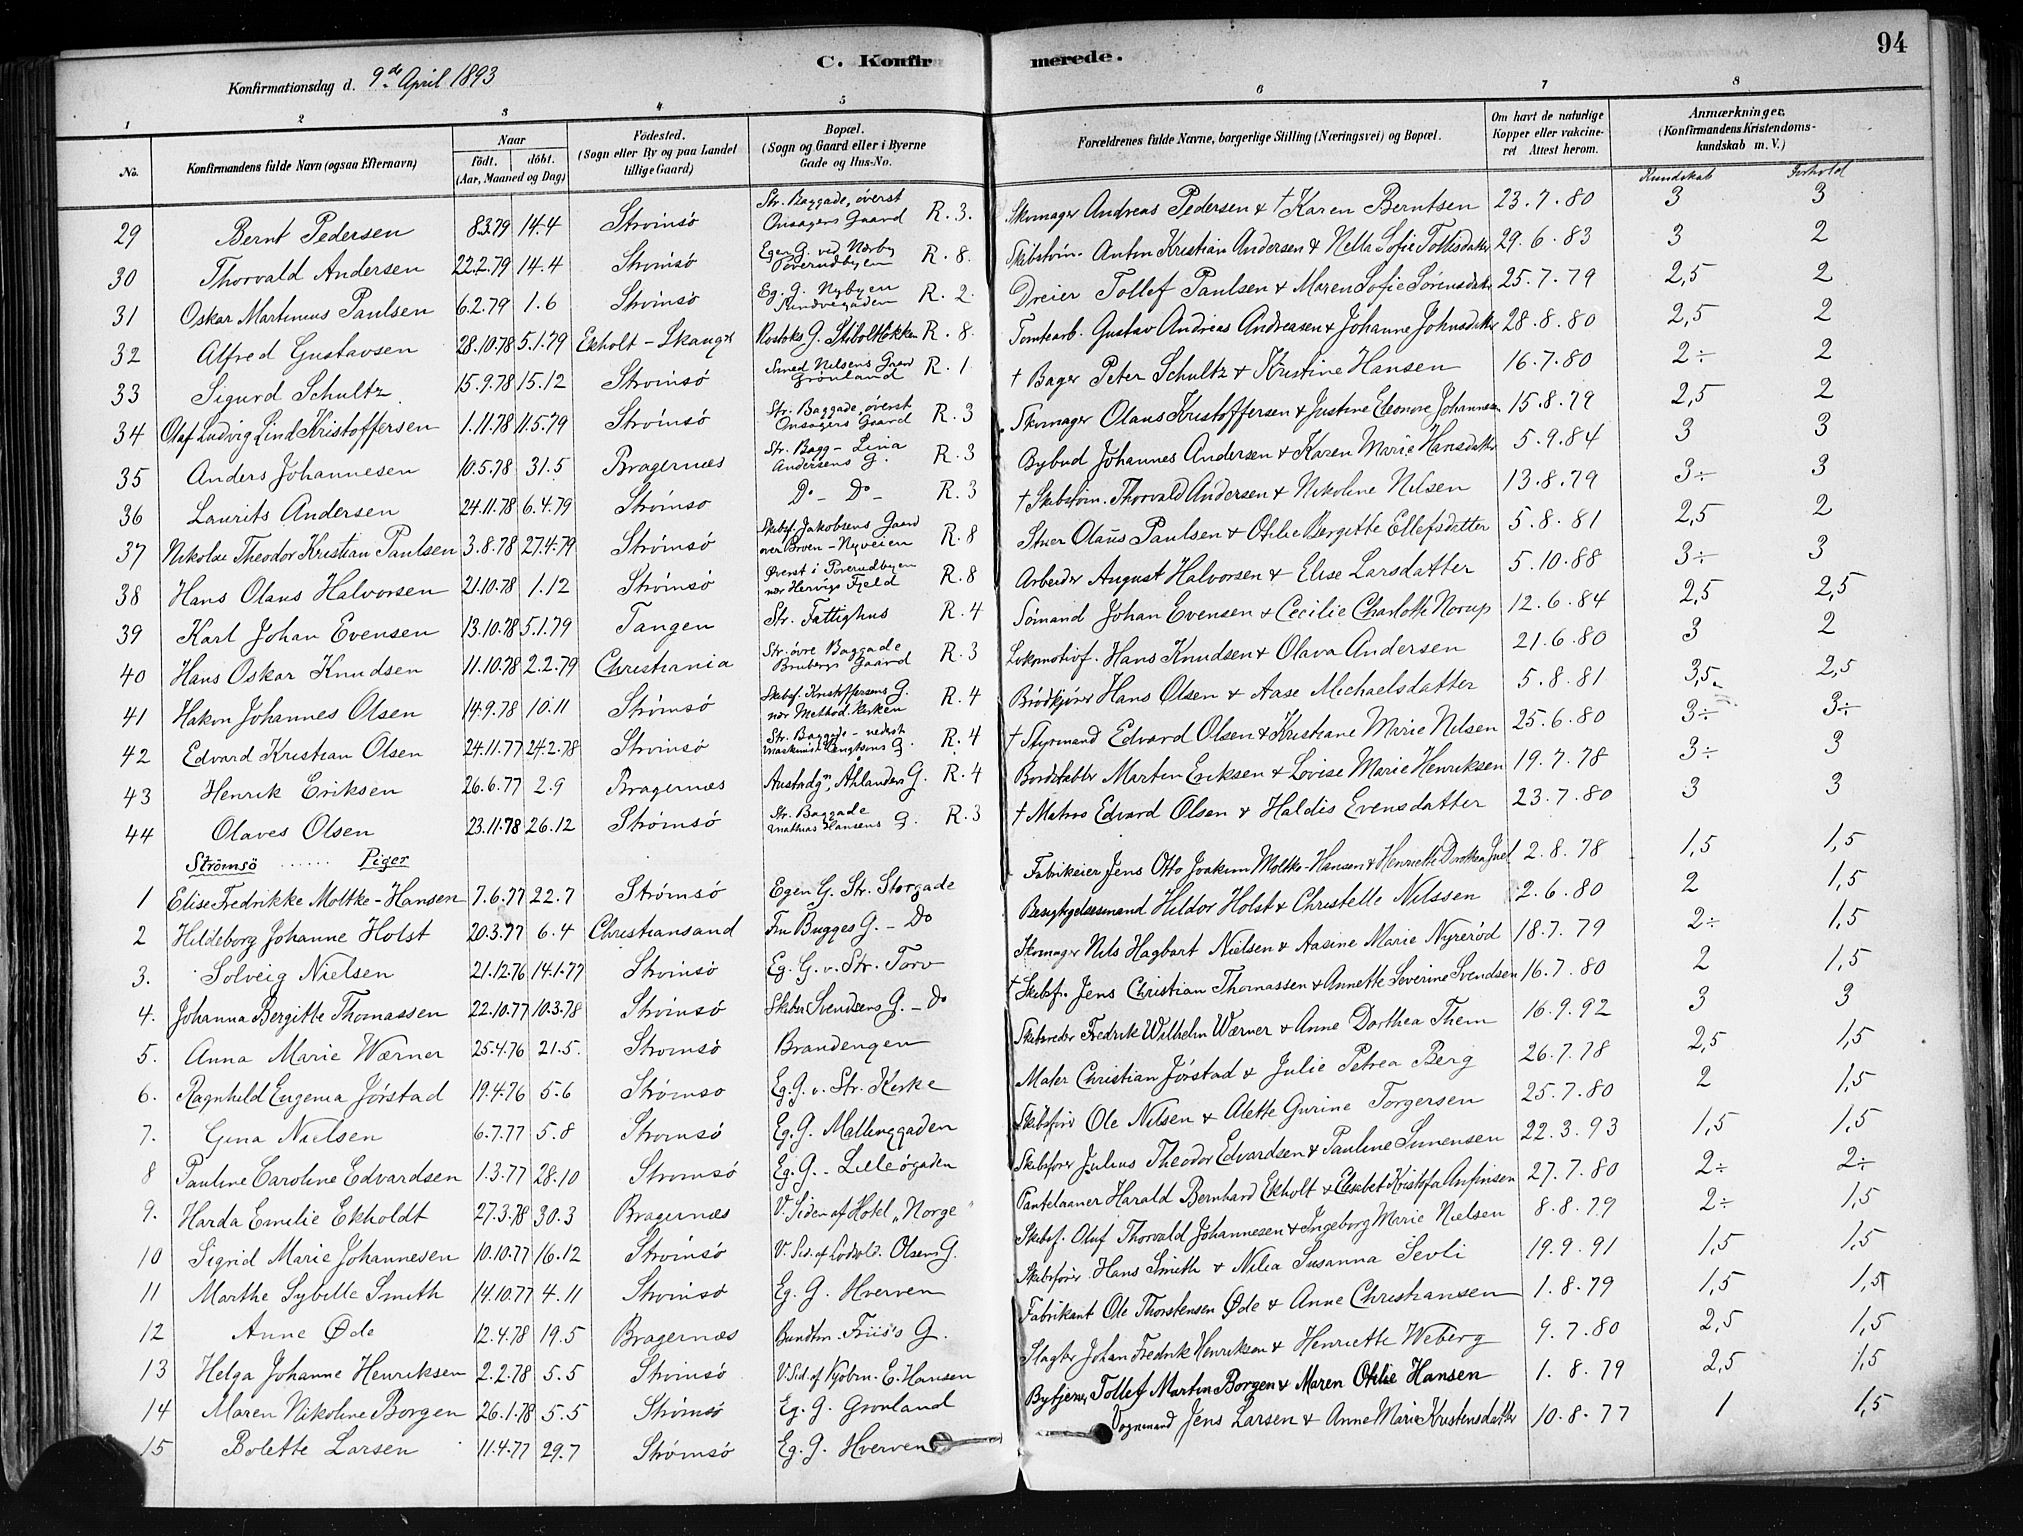 94
C. Konfirmerede.
Konfirmationsdag d. 9de April 1893
1 2 3 4 5 6 7 8
No. Konfirmandens fulde Navn (ogsaa Efternavn) Naar födt. döbt. (Aar, Maaned og Dag) Födested. (Sogn eller By og paa Landet tillige Gaard) Bopæl. (Sogn og Gaard eller i Byerne Gade og Hus-No. Forældrenes fulde Navne, borgerlige Stilling (Næringsvei) og Bopæl. Om havt de naturlige Kopper eller vakcineret Attest herom. Anmærkninger. (Konfirmandens Kristendomskundskab m. V.)
Kundskab Forhold
29 Bernt Pedersen 8.3.79 14.4 Strömsö Str. Baggade, överst Onsagers Gaard R. 3. Skomager Andreas Pedersen & † Karen Berntsen 23.7.80 3 3
30 Thorvald Andersen 22.2.79 14.4 Strömsö Egen G. ved Nærby Toverudbyen R. 8. Skibstöm. Anton Kristian Andersen & Nella Sofie Tollefsdatter 29.6.83 3 2
31 Oskar Martinius Paulsen 6.2.79 1.6 Strömsö Eg. G. Nybyen Sandvegaden R. 2. Dreier Tollef Paulsen & Maren Sofie Sörensdatter 25.7.79 2,5 2
32 Alfred Gustavsen 28.10.78 5.1.79 Ekholt - Skauger Rostoks G. Skibolthokken R. 8 Tomtearb. Gustav Andreas Andreasen & Johanne Johnsdatter 28.8.80 2,5 2
33 Sigurd Schultz 15.9.78 15.12 Strömsö Smed Nelsens Gaard Grönland R. 1 † Bager Peter Schultz & Kristine Hansen 16.7.80 2÷ 2
34 Olaf Ludvig Lind Kristoffersen 1.11.78 11.5.79 Strömsö Str. Baggade, överst Onsagers Gaard R. 3 Skomager Olaus Kristoffersen & Justine Eleonore Johannesen 15.8.79 2,5 2
35 Anders Johannesen 10.5.78 31.5 Bragernæs Str. Bagg - Lina Andersens G. R. 3 Bybud Johannes Andersen & Karen Marie Hansdatter 5.9.84 3 3
36 Laurits Andersen 24.11.78 6.4.79 Strömsö Do - Do - R. 3 † Skibstöm. Thorvald Andersen & Nikoline Nilsen 13.8.79 3÷ 3
37 Nikolai Theodor Kristian Paulsen 3.8.78 27.4.79 Strömsö Skibsf. Jakobsens Gaard over Broen - Nyveien R. 8 Stuer Olaus Paulsen & Otilie Bergitte Ellefsdatter 5.8.81 2,5 2
38 Hans Olaus Halvorsen 21.10.78 1.12 Strömsö Överst i Toverudbyen nær Hervigs Fjeld R. 8 Arbeider August Halvorsen & Elise Larsdatter 5.10.88 3÷ 3
39 Karl Johan Evensen 13.10.78 5.1.79 Tangen Str. Fattighus R. 4 Sömand Johan Evensen & Cecilie Charlotte Norup 12.6.84 2,5 2,5
40 Hans Oskar Knudsen 11.10.78 2.2.79 Christiania Str. övre Baggade Brubergs Gaard R. 3 Lokomotivf. Hans Knudsen & Olava Andersen 21.6.80 3 2
41 Hakon Johannes Olsen 14.9.78 10.11 Strömsö Skibsf. Kristoffersens G. nær Method. Kirken R. 4 Brödkjörer Hans Olsen & Aase Michaelsdatter 5.8.81 3,5 2,5
42 Edvard Kristian Olsen 24.11.77 24.2.78 Strömsö Str. Baggade - nederst Maskinist Bengtsons G. R. 4 † Styrmand Edvard Olsen & Kristiane Marie Nilsen 25.6.80 3÷ 3÷
43 Henrik Eriksen 26.6.77 2.9 Bragernæs Austadg., Åhlanders G. R. 4 Bordstabler Martin Eriksen & Lovise Marie Henriksen 19.7.78 3÷ 3
44 Olaves Olsen 23.11.78 26.12 Strömsö Str. Baggade Mathias Hansens G. R. 3 † Matros Edvard Olsen & Haldis Evensdatter 23.7.80 3 3
Strömsö ...... Piger
1 Elise Fredrikke Moltke-Hansen 7.6.77 22.7 Strömsö Egen G. Str. Storgade Fabrikeier Jens Otto Joakim Moltke-Hansen & Henriette Dorothea Juel 2.8.78 1,5 1,5
2 Hildeborg Johanne Holst 20.3.77 6.4 Christiansand Fru Bugges G. - Do Besigtigelsesmand Hildor Holst & Christelle Nilssen 2.6.80 2 1,5
3. Solveig Nielsen 21.12.76 14.1.77 Strömsö Eg. G. v. Str. Torv Skomager Nils Hagbart Nielsen & Aasine Marie Nyeröd 18.7.79 2÷ 1,5
4. Johanna Bergitte Thomassen 22.10.77 10.3.78 Strömsö Skiber Svendsens G. - Do † Skibsf. Jens Christian Thomassen & Annette Severine Svendsen 16.7.80 2 1,5
5. Anna Marie Wærner 25.4.76 21.5. Strömsö Brandengen Skibsreder Fredrik Wilhelm Wærner & Anne Dorthea Them 16.9.92 3 3
6. Ragnhild Eugenia Jörstad 19.4.76 5.6 Strömsö Eg. G. v. Str. Kirke Maler Christian Jörstad & Julie Petrea Berg 26.7.78 2,5 1,5
7. Gina Nielsen 6.7.77 5.8 Strömsö Eg. G. Mallinggaden Skibsförer Ole Nilsen & Alette Gurine Torgersen 25.7.80 2 1,5
8 Pauline Caroline Edvardsen 1.3.77 28.10 Strömsö Eg. G. - Lilleögaden Skibsförer Julius Theodor Edvardsen & Pauline Simensen 22.3.93 1,5 1,5
9. Harda Emilie Ekholdt 27.3.78 30.3 Bragernæs V. Siden af Hotel "Norge" Pantelaaner Harald Bernhard Ekholt & Elisebet Kristofa Anfinsen 27.7.80 2÷ 2÷
10 Sigrid Marie Johannesen 10.10.77 16.12 Strömsö V. Sid. af Lodsold. Olsens G. Skibsf. Oluf Thorvald Johannesen & Ingeborg Marie Nielsen 8.8.79 2÷ 1,5
11 Marthe Sybille Smith 14.10.77 4.11 Strömsö Eg. G. Hverven Skibsförer Hans Smith & Nilia Susanna Sevli 19.9.91 1,5 1,5
12 Anne Øde 12.4.78 19.5 Bragernæs Bundtm. Friis's G. Fabrikant Ole Thorstensen Øde & Anne Christiansen 1.8.79 1,5 1,5
13 Helga Johanne Henriksen 2.2.78 5.5 Strömsö V. Sid. af Kjöbm. E. Hansen Slagter Johan Fredrik Henriksen & Henriette Weberg 9.7.80 2,5 1,5
14 Maren Nikoline Borgen 26.1.78 5.5 Strömsö Eg. G. Gronland Bytjener Tollef Martin Borgen & Maren Otilie Hansen 1.8.79 2,5 1,5
15 Bolette Larsen 11.4.77 29.7 Strömsö Eg. G. Hverven Vognmand Jens Larsen & Anne Marie Kristensdatter 10.8.77 1 1,5